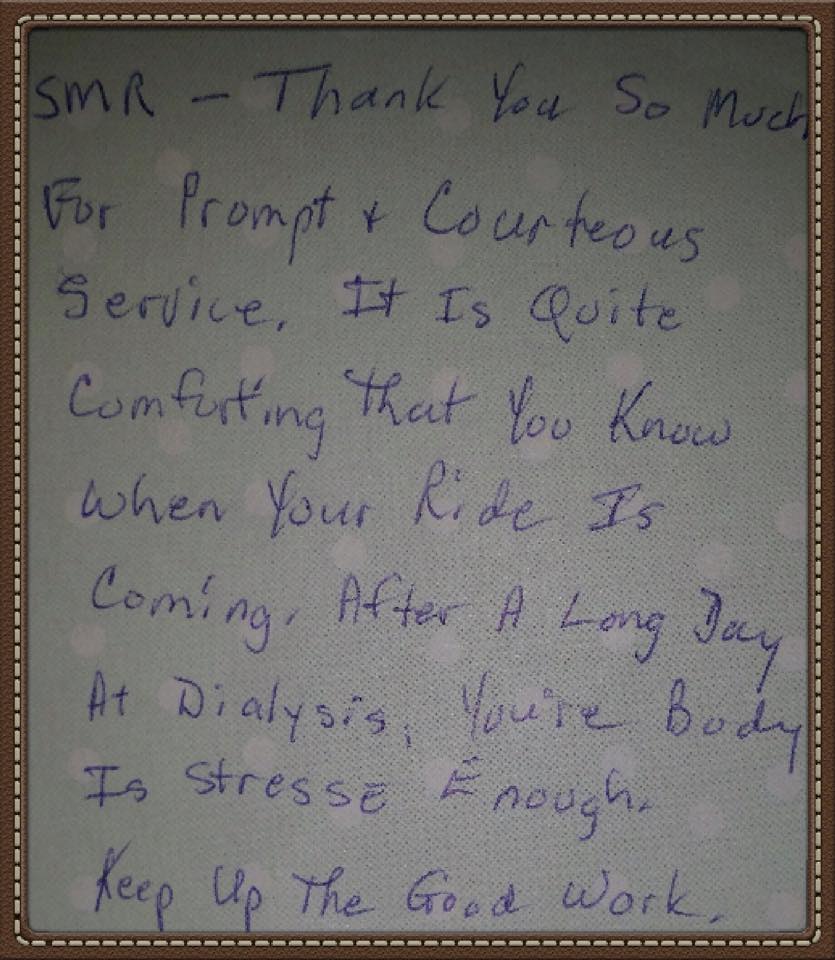 SMR - Thank You So Much
For Prompt + Courteous
Service. It Is Quite
Comforting That You Know
When Your Ride Is
Coming. After A Long Day
At Dialysis, You're Body
Is Stresse Enough.
Keep Up The Good Work.